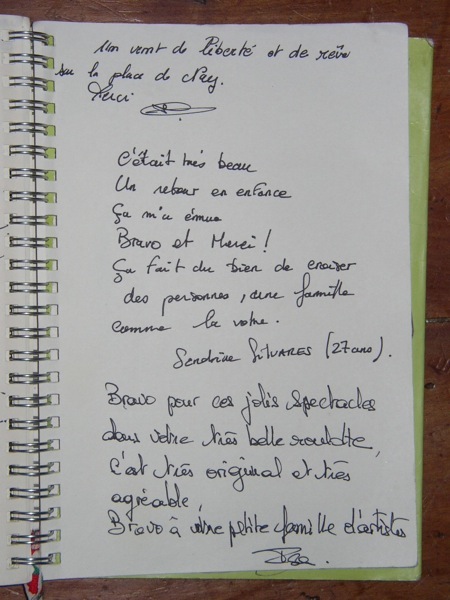 Un vent de Liberté et de rêve
sur la place de Nay.
Merci
C'était très beau
Un retour en enfance
Ça m'a émue
Bravo et Merci !
Ça fait du bien de croiser
des personnes, une famille
comme la votre.
Sendrine SILVARES (27 ans).
Bravo pour ces jolis spectacles
dans votre très belle roulotte,
C'est très original et très
agréable,
Bravo à votre petite famille d'artistes